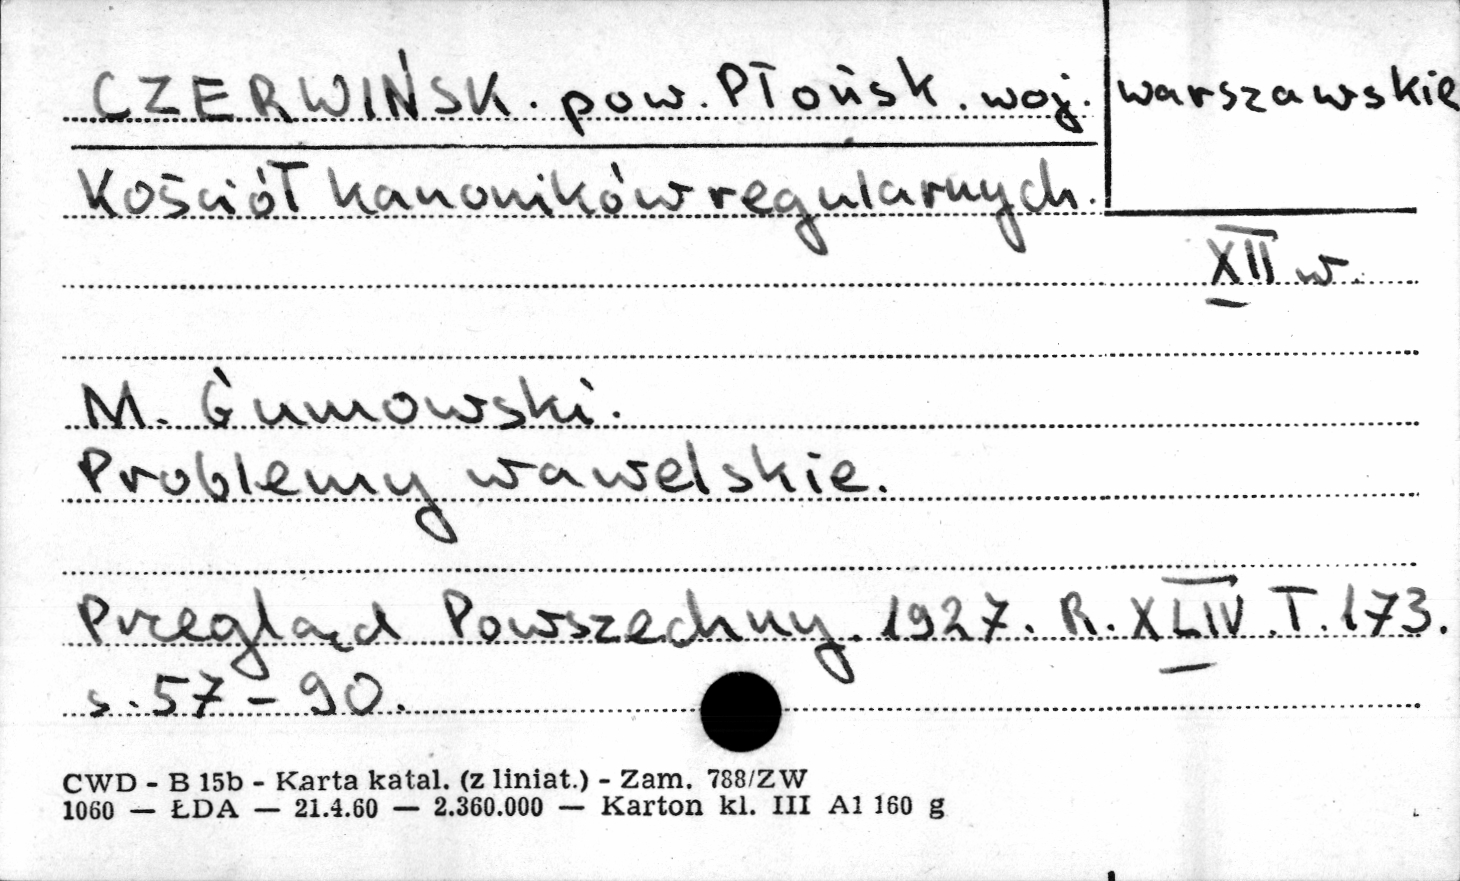 CZERWIŃSK. pow. Płońsk. woj. warszawskie
Kościół kanoników regularnych.
XII w.
M. Gumowski.
Problemy wawelskie.
Przegląd Powszechny. 1927. R. XLIV. T. 173.
s. 57 - 90.
CWD - B 15b - Karta katal. (z liniat.) - Zam. 788/ZW
1060 — ŁDA — 21.4.60 — 2.360.000 — Karton kl. III A1 160 g